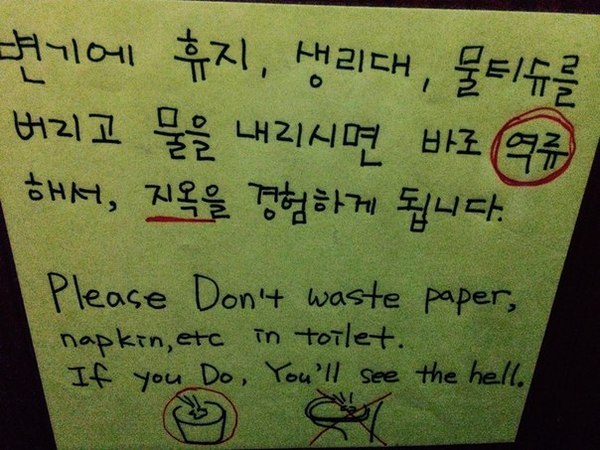 변기에 휴지, 생리대, 물티슈를
버리고 물을 내리시면 바로 역류
해서, 지옥을 경험하게 됩니다.
Please Don't waste paper,
napkin, etc in toilet.
If you Do, You'll see the hell.